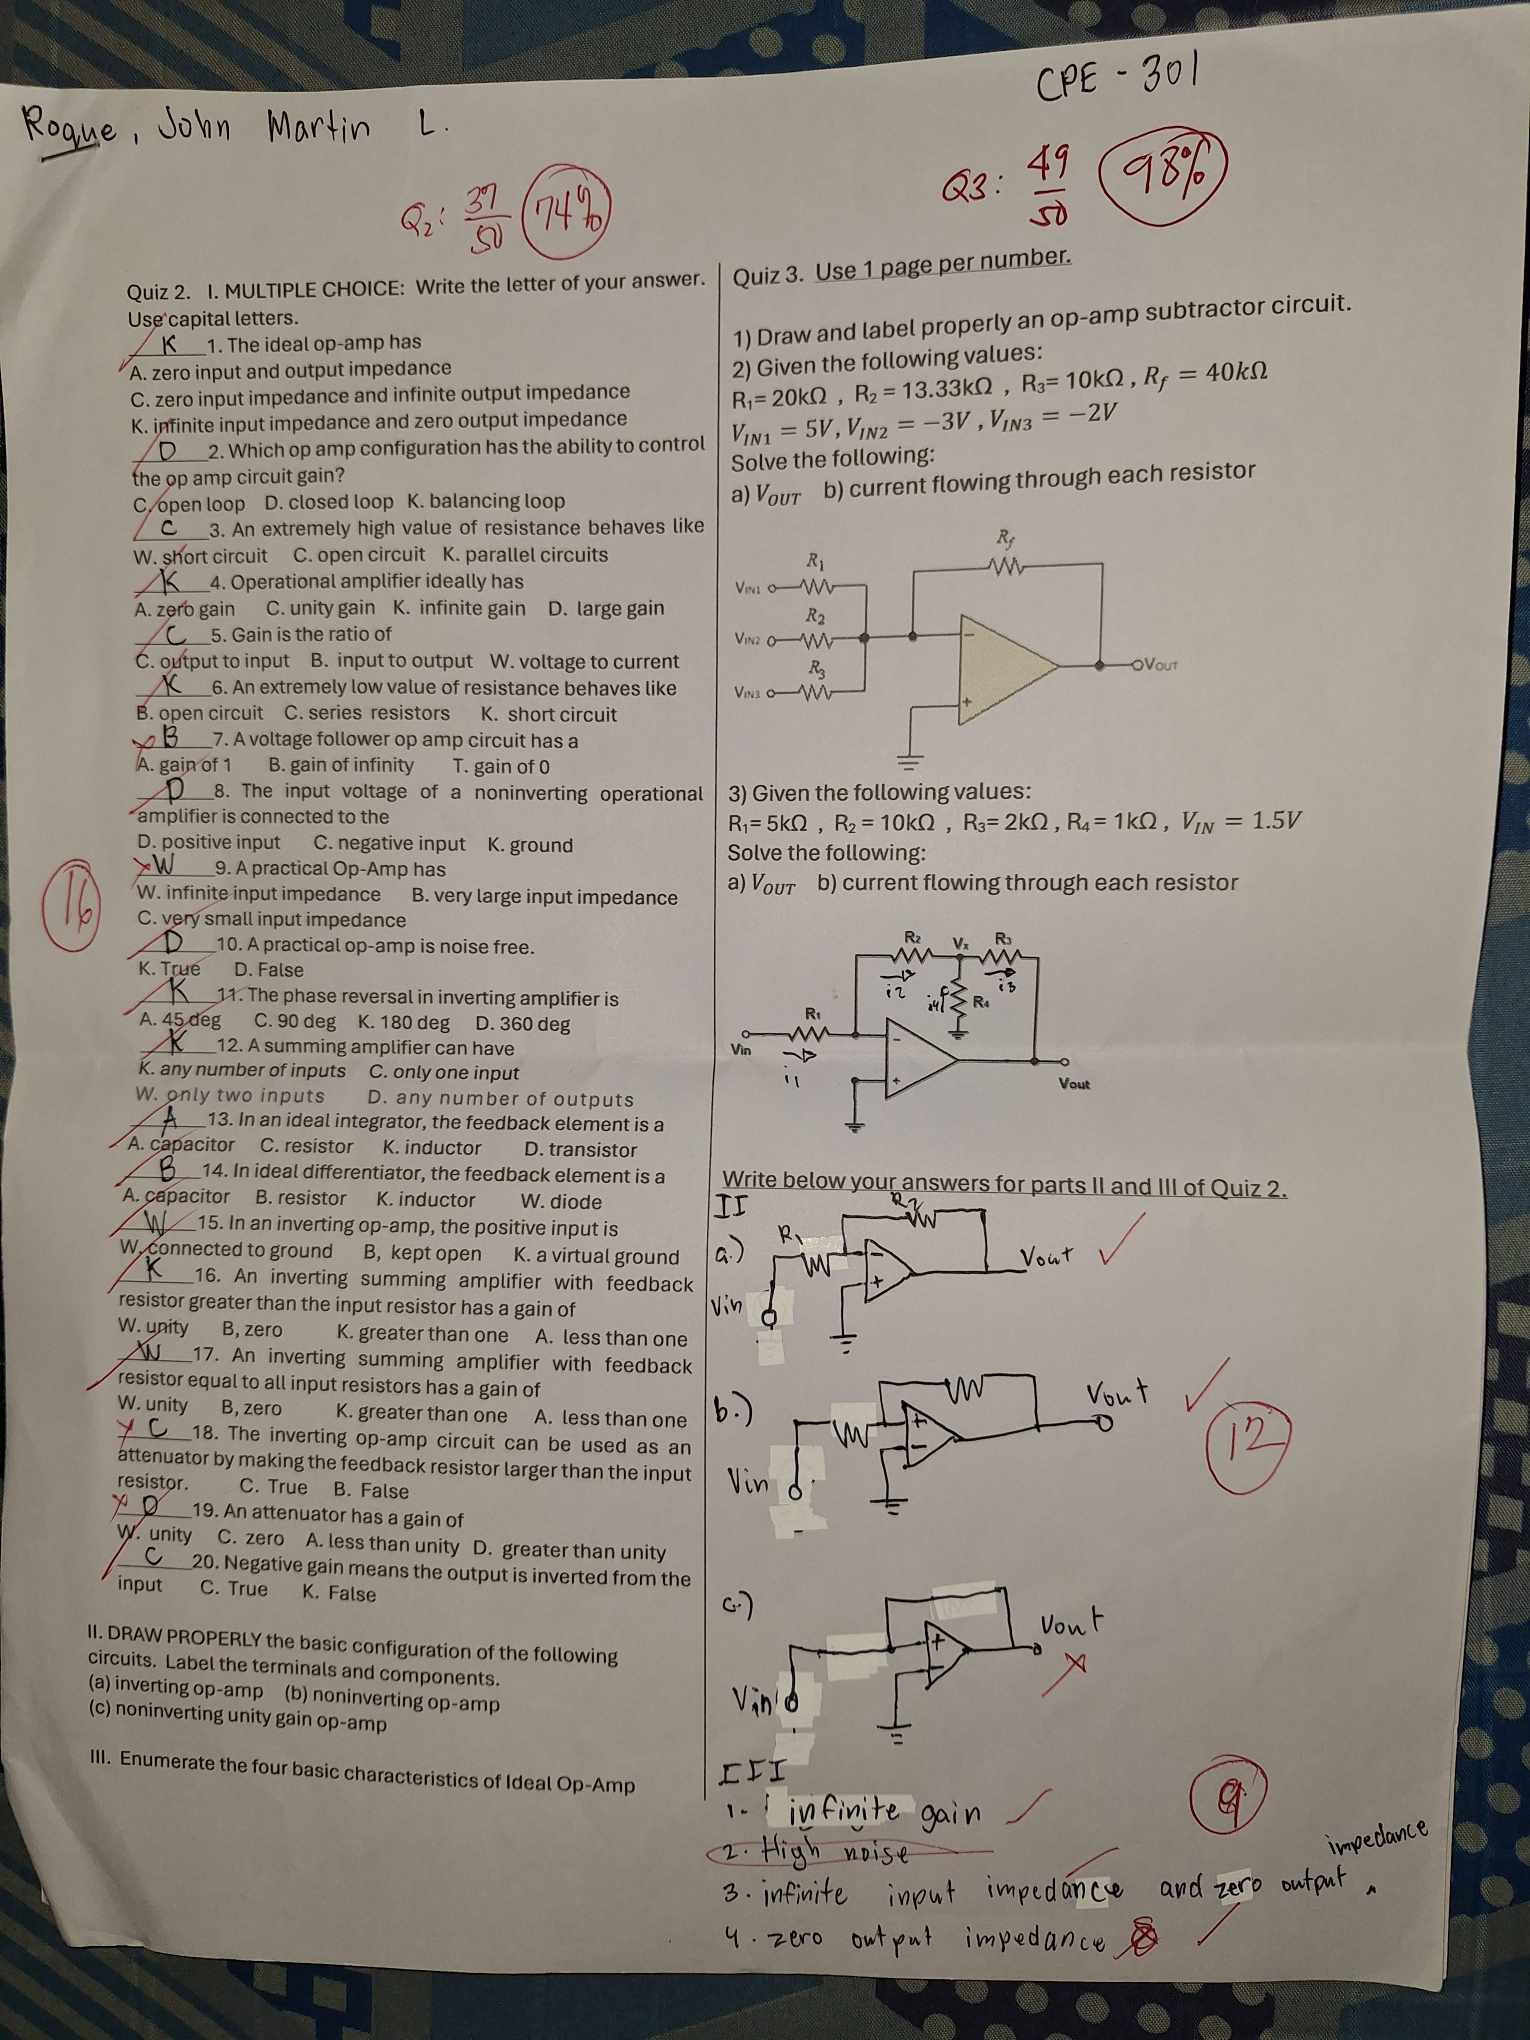 CPE - 301
Roque, John Martin L.
Q2: 37/50 74%
Q3: 49/50 98%
Quiz 2. I. MULTIPLE CHOICE: Write the letter of your answer.
Use capital letters.
K 1. The ideal op-amp has
A. zero input and output impedance
C. zero input impedance and infinite output impedance
K. infinite input impedance and zero output impedance
D 2. Which op amp configuration has the ability to control
the op amp circuit gain?
C. open loop D. closed loop K. balancing loop
C 3. An extremely high value of resistance behaves like
W. short circuit C. open circuit K. parallel circuits
K 4. Operational amplifier ideally has
A. zero gain C. unity gain K. infinite gain D. large gain
C 5. Gain is the ratio of
C. output to input B. input to output W. voltage to current
K 6. An extremely low value of resistance behaves like
B. open circuit C. series resistors K. short circuit
B 7. A voltage follower op amp circuit has a
A. gain of 1 B. gain of infinity T. gain of 0
D 8. The input voltage of a noninverting operational
amplifier is connected to the
D. positive input C. negative input K. ground
W 9. A practical Op-Amp has
W. infinite input impedance B. very large input impedance
C. very small input impedance
D 10. A practical op-amp is noise free.
K. True D. False
K 11. The phase reversal in inverting amplifier is
A. 45 deg C. 90 deg K. 180 deg D. 360 deg
K 12. A summing amplifier can have
K. any number of inputs C. only one input
W. only two inputs D. any number of outputs
A 13. In an ideal integrator, the feedback element is a
A. capacitor C. resistor K. inductor D. transistor
B 14. In ideal differentiator, the feedback element is a
A. capacitor B. resistor K. inductor W. diode
W 15. In an inverting op-amp, the positive input is
W. connected to ground B, kept open K. a virtual ground
K 16. An inverting summing amplifier with feedback
resistor greater than the input resistor has a gain of
W. unity B, zero K. greater than one A. less than one
W 17. An inverting summing amplifier with feedback
resistor equal to all input resistors has a gain of
W. unity B, zero K. greater than one A. less than one
C 18. The inverting op-amp circuit can be used as an
attenuator by making the feedback resistor larger than the input
resistor. C. True B. False
D 19. An attenuator has a gain of
W. unity C. zero A. less than unity D. greater than unity
C 20. Negative gain means the output is inverted from the
input C. True K. False
16
II. DRAW PROPERLY the basic configuration of the following
circuits. Label the terminals and components.
(a) inverting op-amp (b) noninverting op-amp
(c) noninverting unity gain op-amp
III. Enumerate the four basic characteristics of Ideal Op-Amp
Quiz 3. Use 1 page per number.
1) Draw and label properly an op-amp subtractor circuit.
2) Given the following values:
R1= 20kΩ , R2 = 13.33kΩ , R3= 10kΩ , Rf = 40kΩ
VIN1 = 5V, VIN2 = −3V , VIN3 = −2V
Solve the following:
a) VOUT b) current flowing through each resistor
Rf
R1
VIN1
R2
VIN2
R3
VIN3
−
+
VOUT
3) Given the following values:
R1= 5kΩ , R2 = 10kΩ , R3= 2kΩ , R4= 1kΩ, VIN = 1.5V
Solve the following:
a) VOUT b) current flowing through each resistor
R2 Vx R3
i2 i4 R4 i3
R1
Vin
i1
-
+
Vout
Write below your answers for parts II and III of Quiz 2.
II
a.) R1 R2 Vin - + Vout
b.) Vin + - Vout
12
c.) Vin + - Vout
III
1. infinite gain
9
2. High noise
3. infinite input impedance and zero output impedance
4. zero output impedance